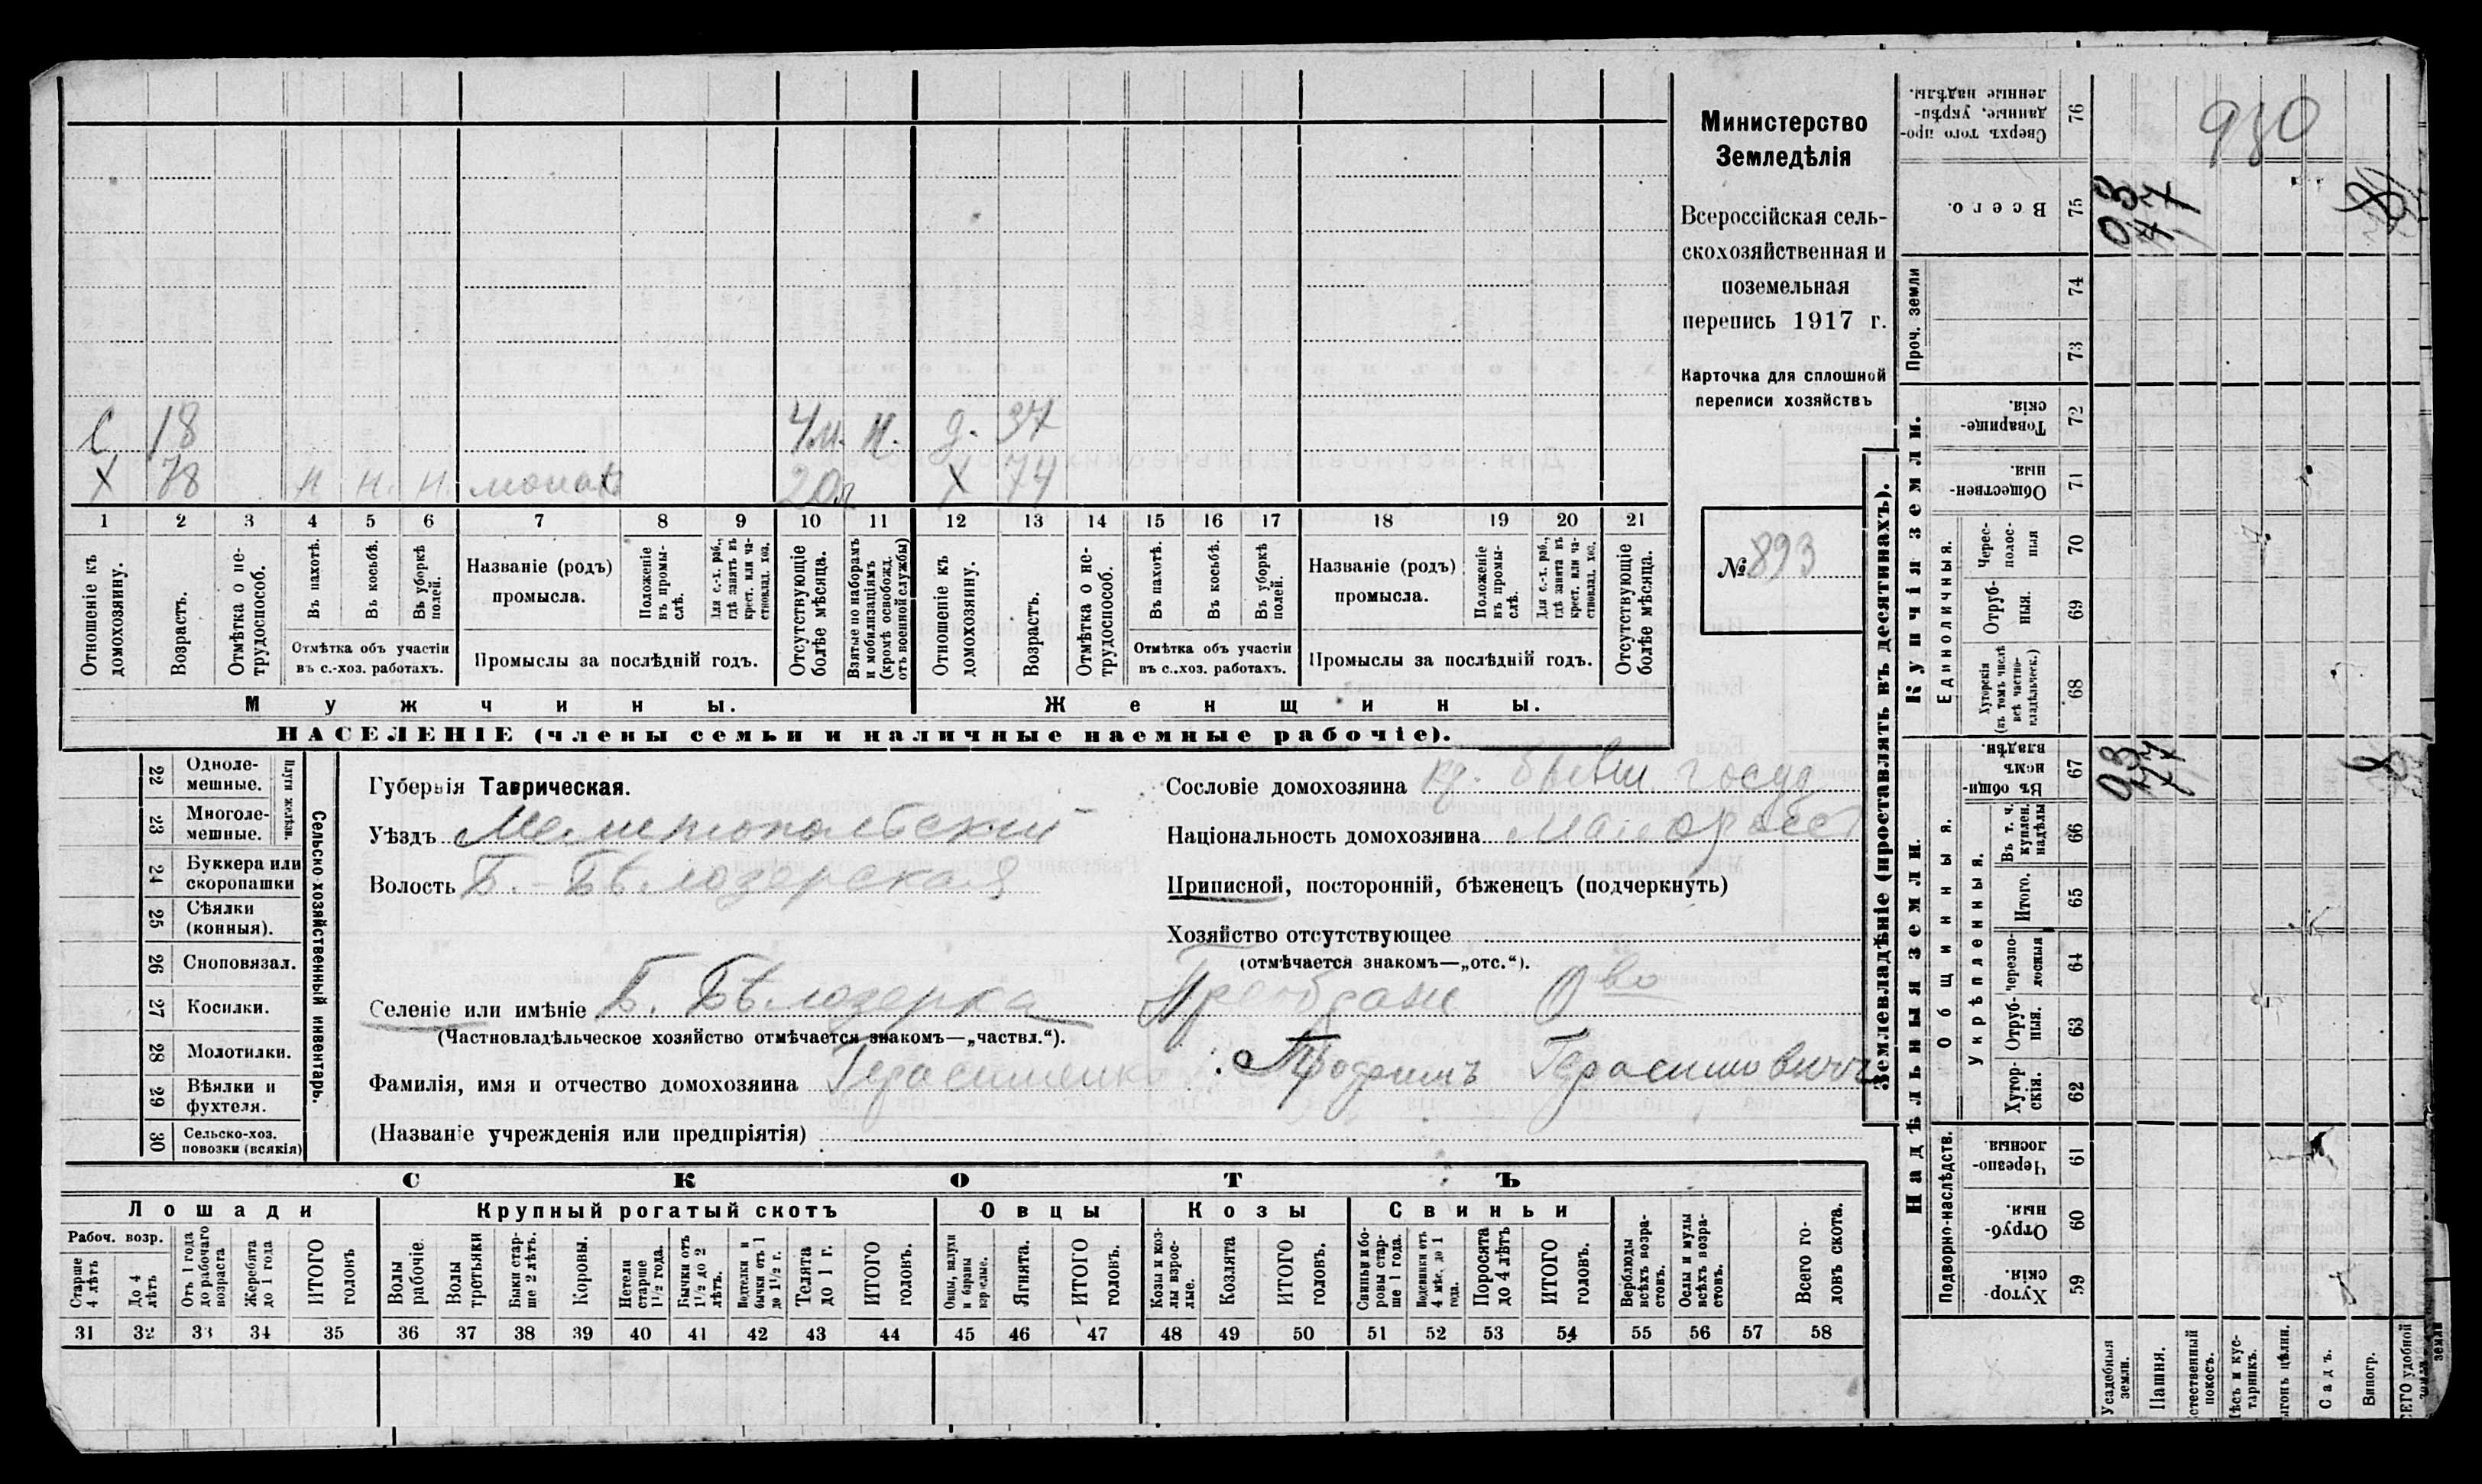 Министерство
Земледѣлія
Всероссійская сель-
скохозяйственная и
поземельная
перепись 1917 г.
Карточка для сплошной
переписи хозяйствъ
№ 893
С 18 4 м. н. д. 37
Х 78 н н. н. монах 20л Х 74
1 2 3 4 5 6 7 8 9 10 11 12 13 14 15 16 17 18 19 20 21
Отношеніе къ домохозяину.
Возрастъ.
Отмѣтка о не-трудоспособ.
Въ пахотѣ.
Въ косьбѣ.
Въ уборкѣ полей.
Отмѣтка объ участіи
въ с.-хоз. работахъ.
Названіе (родъ)
промысла.
Положеніе въ промы-слѣ.
Для с.-х. раб., гдѣ занятъ въ крест. или ча-стновлад. хоз.
Промыслы за послѣдній годъ.
Отсутствующіе болѣе мѣсяца.
Взятые по наборамъ и мобилизаціямъ (кромѣ освобожд. отъ военной службы)
Отношеніе къ домохозяину.
Возрастъ.
Отмѣтка о не-трудоспособ.
Въ пахотѣ.
Въ косьбѣ.
Въ уборкѣ полей.
Отмѣтка объ участіи
въ с.-хоз. работахъ.
Названіе (родъ)
промысла.
Положеніе въ промы-слѣ.
Для с.-х. раб., гдѣ занята въ крест. или ча-стновлад. хоз.
Промыслы за послѣдній годъ.
Отсутствующіе болѣе мѣсяца.
Мужчины.
Женщины.
НАСЕЛЕНІЕ (члены семьи и наличные наемные рабочіе).
Сельско хозяйственный инвентарь.
Плуги желѣзн.
22 Одноле-мешные.
23 Многоле-мешные.
24 Буккера или скоропашки
25 Сѣялки (конныя).
26 Сноповязал.
27 Косилки.
28 Молотилки.
29 Вѣялки и фухтеля.
30 Сельско-хоз. повозки (всякія)
Губернія Таврическая.
Уѣздъ Мелитопольскій
Волость Б.-Бѣлозерская
Селеніе или имѣніе Б. Бѣлозерка
(Частновладѣльческое хозяйство отмѣчается знакомъ—„частвл.“).
Фамилія, имя и отчество домохозяина Герасименко Трофимъ Герасимовичъ
(Названіе учрежденія или предпріятія)
Сословіе домохозяина кр. бывш. госуд
Національность домохозяина малоросс
Приписной, посторонній, бѣженец (подчеркнуть)
Хозяйство отсутствующее
(отмѣчается знакомъ—„отс.“).
О во
СКОТЪ
Лошади
Рабоч. возр.
Старше 4 лѣтъ
До 4 лѣтъ
Отъ 1 года до рабочаго возраста
Жеребята до 1 года
ИТОГО головъ
Крупный рогатый скотъ
Волы рабочіе.
Волы третьяки
Быки стар-ше 2 лѣтъ.
Коровы.
Нетели старше 1½ года.
Бычки отъ 1½ до 2 лѣтъ.
Подтелки и бычки отъ 1 до 1½ г.
Телята до 1 г.
ИТОГО головъ.
Овцы
Овцы, валухи и бараны взрослые.
Ягнята.
ИТОГО головъ.
Козы
Козы и коз-лы взрос-лые.
Козлята
ИТОГО головъ.
Свиньи
Свиньи и бо-ровы стар-ше 1 года.
Подсвинки отъ 4 мѣс. до 1 года.
Поросята до 4 лѣтъ
ИТОГО головъ.
Верблюды всѣхъ возра-стовъ.
Ослы и мулы всѣхъ возра-стовъ.
Всего го-ловъ скота.
31 32 33 34 35 36 37 38 39 40 41 42 43 44 45 46 47 48 49 50 51 52 53 54 55 56 57 58
Землевладѣніе (проставлять въ десятинахъ).
Купчія земли.
Надѣльныя земли.
Сверхъ того про-данные, укрѣп-ленные надѣлы. 76
980
Всего. 75
Проч. земли
74
73
Товарище-скія. 72
Обществен-ныя. 71
Единоличныя.
Черес-полос-ныя 70
Отруб-ныя. 69
Хуторскія (въ томъ числѣ всѣ частно-владѣльческ.) 68
Общинныя.
Въ общи-номъ владѣн. 67
Укрѣпленныя.
Въ т. ч. куплен. надѣлы 66
Итого. 65
Черезпо-лосныя 64
Отруб-ныя. 63
Хутор-скія. 62
Подворно-наслѣдств.
Черезпо-лосныя. 61
Отруб-ныя. 60
Хутор-скія. 59
Усадебныя земли.
Пашня.
Садъ.
Виногр.